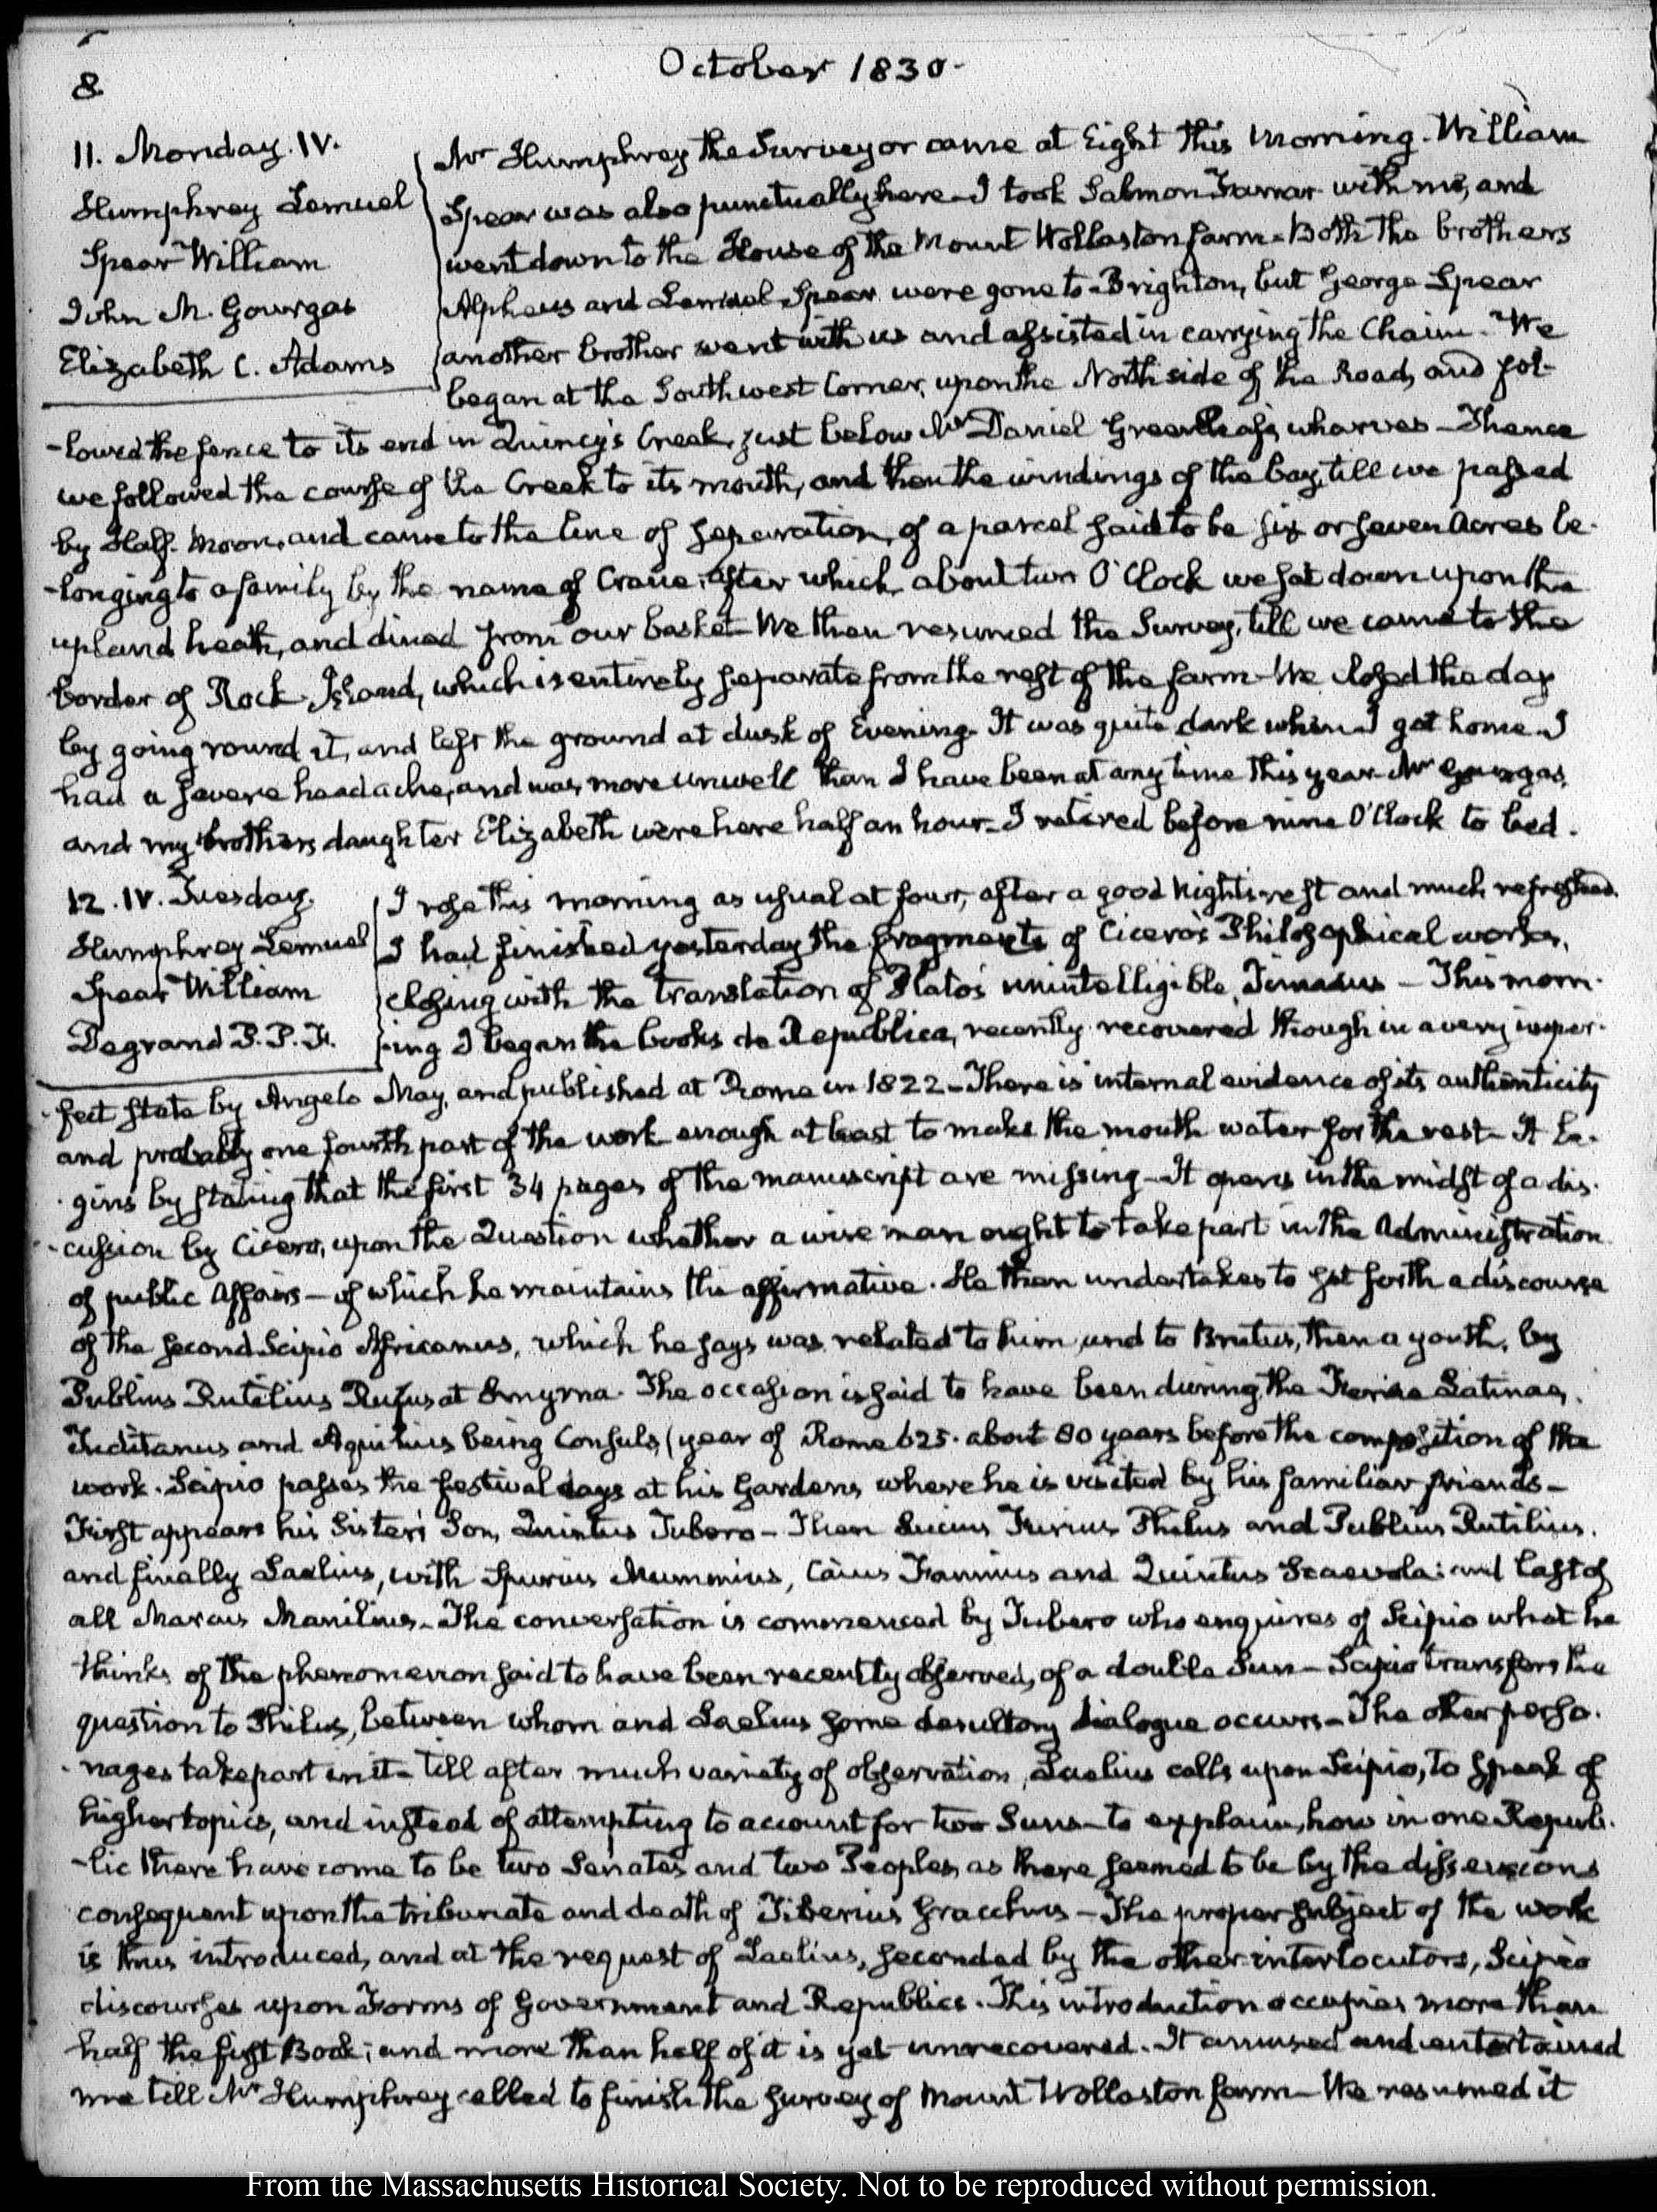 8
October 1830-
11. Monday. IV.
Humphrey Lemuel
Spear William
John M. Gourgas
Elizabeth C. Adams
Mr Humphrey the Surveyor came at Eight this morning. William
Spear was also punctually here- I took Salmon Farrar with me, and
went down to the House of the Mount Wollaston farm- Both the brothers
Alpheus and Lemuel Spear were gone to Brighton, but George Spear
another brother went with us and assisted in carrying the Chain- We
began at the South west Corner, upon the North side of the Road, and fol-
-lowed the fence to its end in Quincy's Creek, just below Mr Daniel Greenleaf's wharves- Thence
we followed the course of the Creek to its mouth, and then the windings of the bay, till we passed
by Half-Moon, and came to the line of separation, of a parcel said to be six or seven Acres be-
-longing to a family by the name of Crane: after which, about two O'Clock we sat down upon the
upland heath, and dined from our basket- We then resumed the Survey, till we came to the
border of Rock-Island, which is entirely separate from the rest of the farm- We closed the day
by going round it, and left the ground at dusk of Evening. It was quite dark when I got home- I
had a severe headache, and was more unwell than I have been at any time this year- Mr Gourgas,
and my brothers daughter Elizabeth were here half an hour- I retired before nine O'Clock to bed.
12. IV. Tuesday.
Humphrey Lemuel
Spear William
Degrand P. P. F.
I rose this morning as usual at four, after a good Night's rest and much refreshed.
I had finished yesterday the fragments of Cicero's Philosophical works,
closing with the translation of Plato's unintelligible, Timaeus - This morn-
-ing I began the books de Republica, recently recovered though in a very imper-
-fect state by Angelo May, and published at Rome in 1822- There is internal evidence of its authenticity
and probably one fourth part of the work enough at least to make the mouth water for the rest- It be-
-gins by stating that the first 34 pages of the manuscript are missing- It opens in the midst of a dis-
-cussion by Cicero, upon the Question whether a wise man ought to take part in the Administration
of public Affairs- of which he maintains the affirmative. He then undertakes to set forth a discourse
of the second Scipio Africanus, which he says was related to him, and to Brutus, then a youth, by
Publius Rutilius Rufus at Smyrna. The occasion is said to have been during the Feriae Latinae,
Tuditanus and Aquilius being Consuls, (year of Rome 625. about 80 years before the composition of the
work. Scipio passes the festival days at his Gardens where he is visited by his familiar friends-
First appears his Sister's Son, Quintus Tubero- Then Lucius Furius Philus and Publius Rutilius,
and finally Laelius, with Spurius Mummius, Caius Fannius and Quintus Scaevola: and last of
all Marcus Manilius- The conversation is commenced by Tubero who enquires of Scipio what he
thinks of the phenomenon said to have been recently observed, of a double Sun- Scipio transfers the
question to Philus, between whom and Laelius some desultory dialogue occurs- The other perso-
-nages take part in it- till after much variety of observation, Laelius calls upon Scipio, to speak of
higher topics, and instead of attempting to account for two Suns- to explain, how in one Repub-
-lic there have come to be two Senates and two Peoples, as there seemed to be by the dissensions
consequent upon the tribunate and death of Tiberius Gracchus- The proper subject of the work
is thus introduced, and at the request of Laelius, seconded by the other interlocutors, Scipio
discourses upon Forms of Government and Republics. This introduction occupies more than
half the first Book; and more than half of it is yet unrecovered. It amused and entertained
me till Mr Humphrey called to finish the survey of Mount Wollaston farm- We resumed it
From the Massachusetts Historical Society. Not to be reproduced without permission.